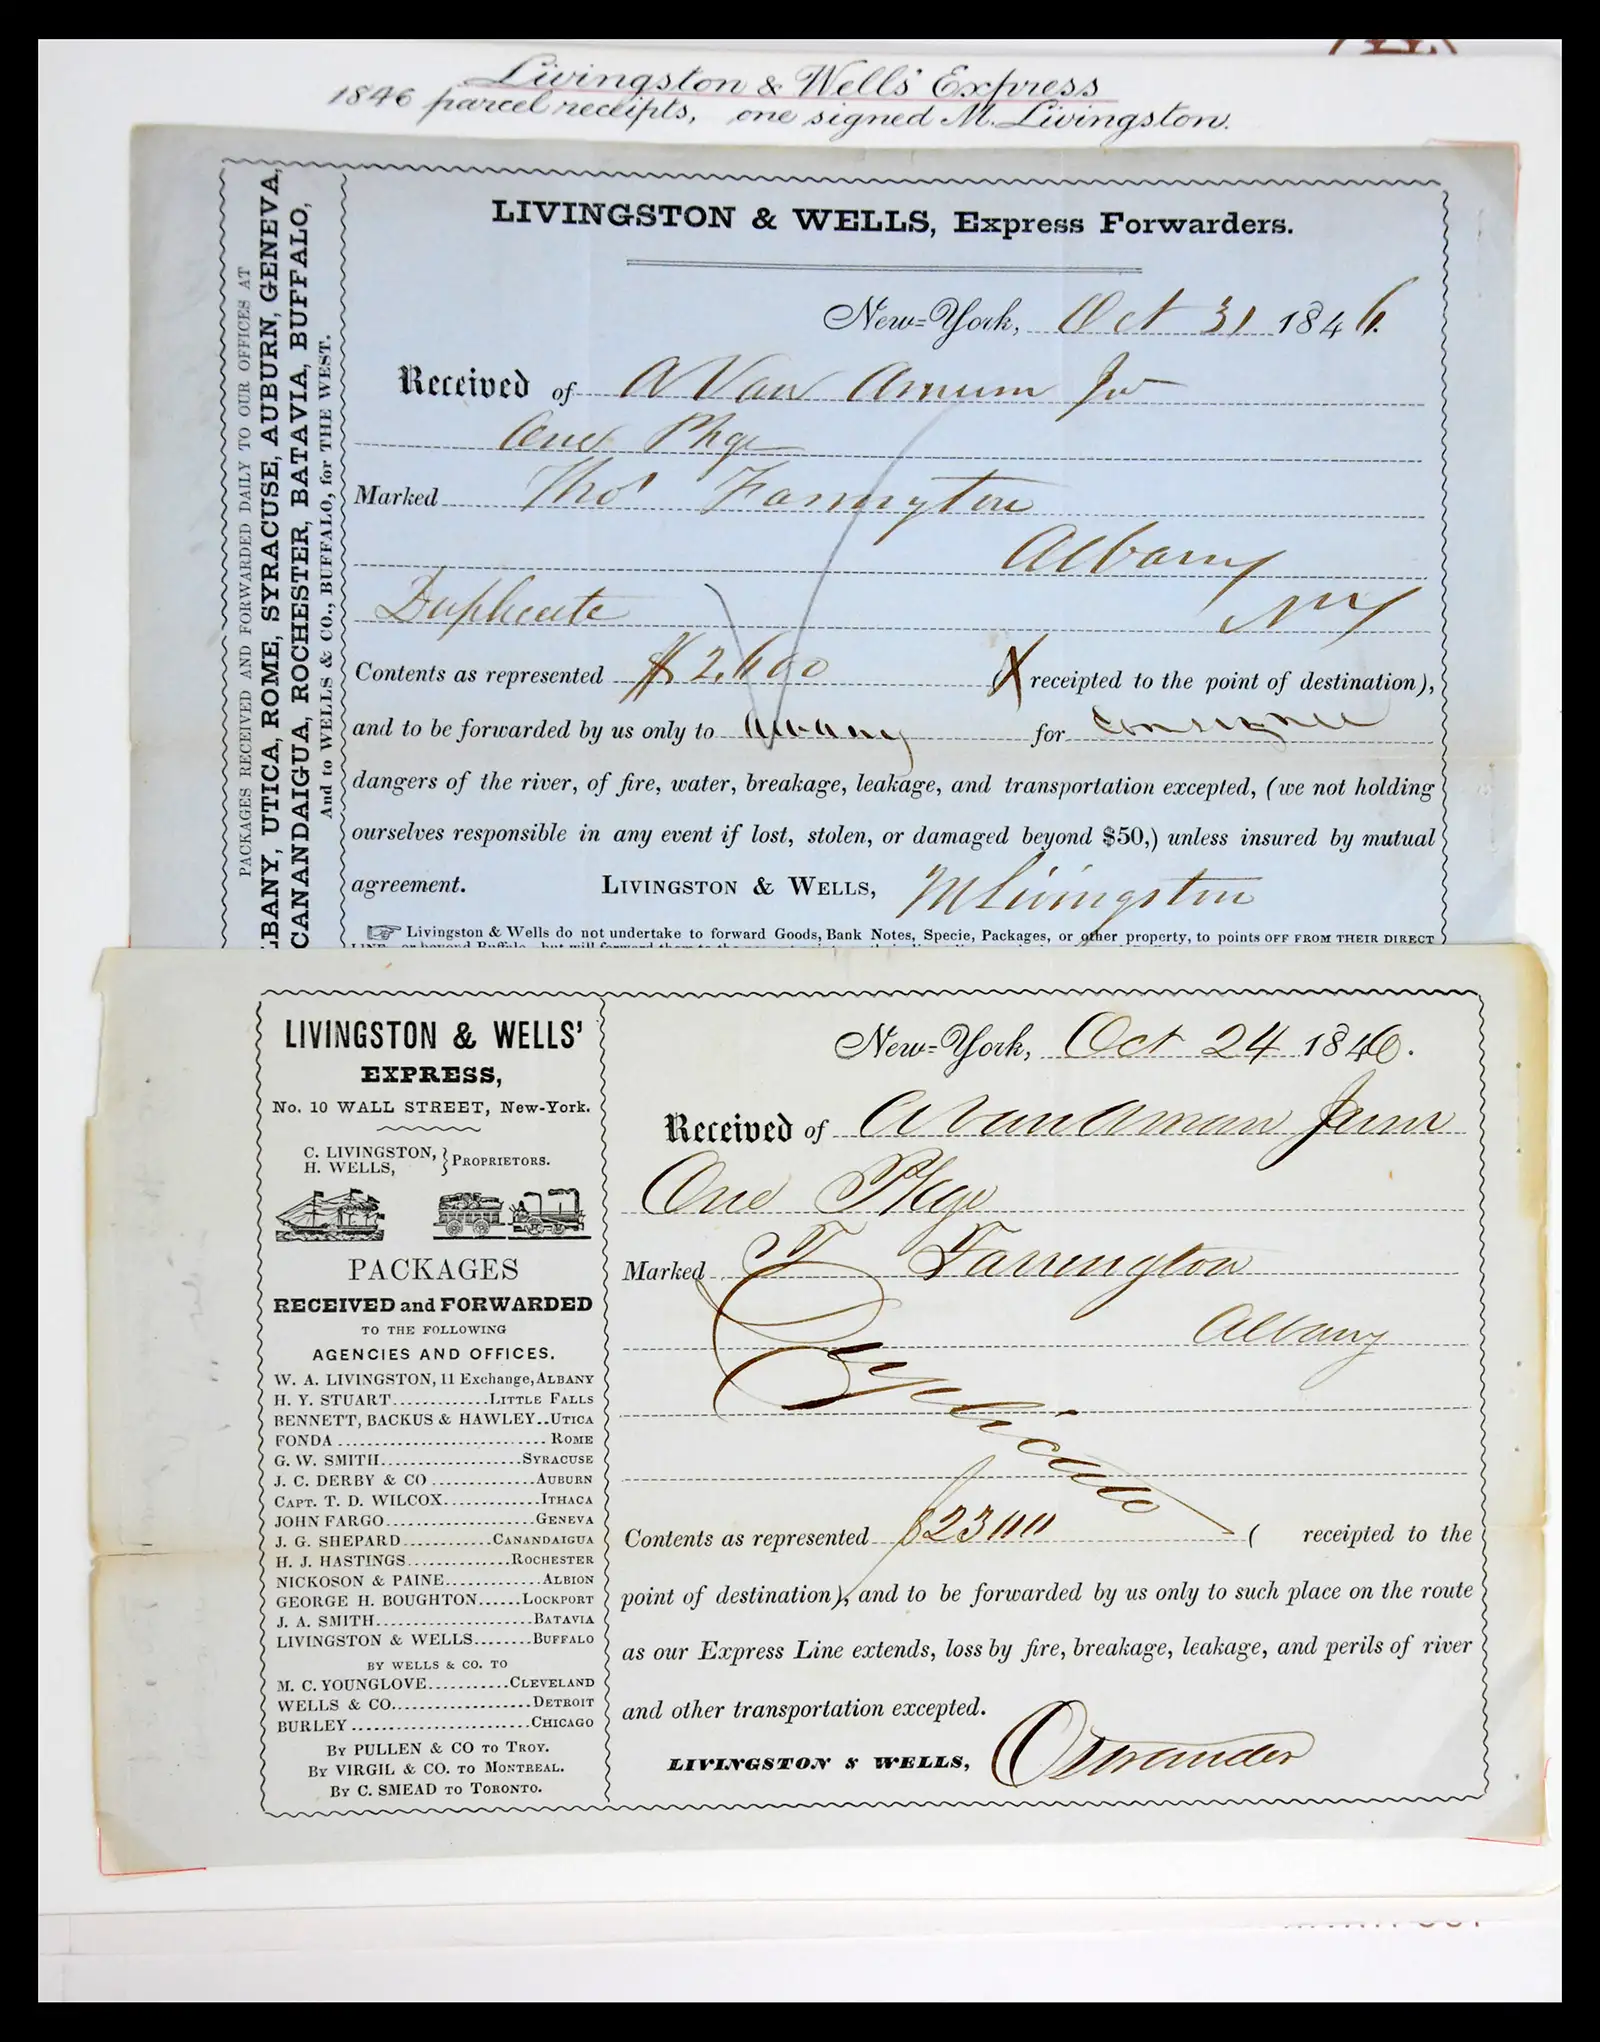 Livingston & Wells' Express
1846 parcel receipts, one signed M. Livingston.
PACKAGES RECEIVED AND FORWARDED DAILY TO OUR OFFICES AT
LBANY, UTICA, ROME, SYRACUSE, AUBURN, GENEVA,
CANANDAIGUA, ROCHESTER, BATAVIA, BUFFALO,
And to WELLS & CO., BUFFALO, for THE WEST.
LIVINGSTON & WELLS, Express Forwarders.
New-York, Oct 31 1846.
Received of A Van Amum Jr
One Pkge
Marked Thos Farrington
Albany
Duplicate NY
Contents as represented $2,600 ( receipted to the point of destination),
and to be forwarded by us only to Albany for consignee
dangers of the river, of fire, water, breakage, leakage, and transportation excepted, (we not holding
ourselves responsible in any event if lost, stolen, or damaged beyond $50,) unless insured by mutual
agreement. LIVINGSTON & WELLS, M Livingston
☞ Livingston & Wells do not undertake to forward Goods, Bank Notes, Specie, Packages, or other property, to points OFF FROM THEIR DIRECT
LIVINGSTON & WELLS'
EXPRESS,
No. 10 WALL STREET, New-York.
C. LIVINGSTON,
H. WELLS, } PROPRIETORS.
PACKAGES
RECEIVED and FORWARDED
TO THE FOLLOWING
AGENCIES AND OFFICES.
W. A. LIVINGSTON, 11 Exchange, ALBANY
H. Y. STUART.............LITTLE FALLS
BENNETT, BACKUS & HAWLEY..UTICA
FONDA...........................ROME
G. W. SMITH....................SYRACUSE
J. C. DERBY & CO...............AUBURN
CAPT. T. D. WILCOX.............ITHACA
JOHN FARGO.....................GENEVA
J. G. SHEPARD............CANANDAIGUA
H. J. HASTINGS...............ROCHESTER
NICKOSON & PAINE.............ALBION
GEORGE H. BOUGHTON......LOCKPORT
J. A. SMITH......................BATAVIA
LIVINGSTON & WELLS........BUFFALO
BY WELLS & CO. TO
M. C. YOUNGLOVE...........CLEVELAND
WELLS & CO....................DETROIT
BURLEY.........................CHICAGO
BY PULLEN & CO TO TROY.
BY VIRGIL & CO. TO MONTREAL.
BY C. SMEAD TO TORONTO.
New-York, Oct 24 1846.
Received of A Van Aman Junr
One Pkge
Marked T Farrington
Albany
Duplicate
Contents as represented $2300 ( receipted to the
point of destination), and to be forwarded by us only to such place on the route
as our Express Line extends, loss by fire, breakage, leakage, and perils of river
and other transportation excepted.
LIVINGSTON & WELLS, Ostrander